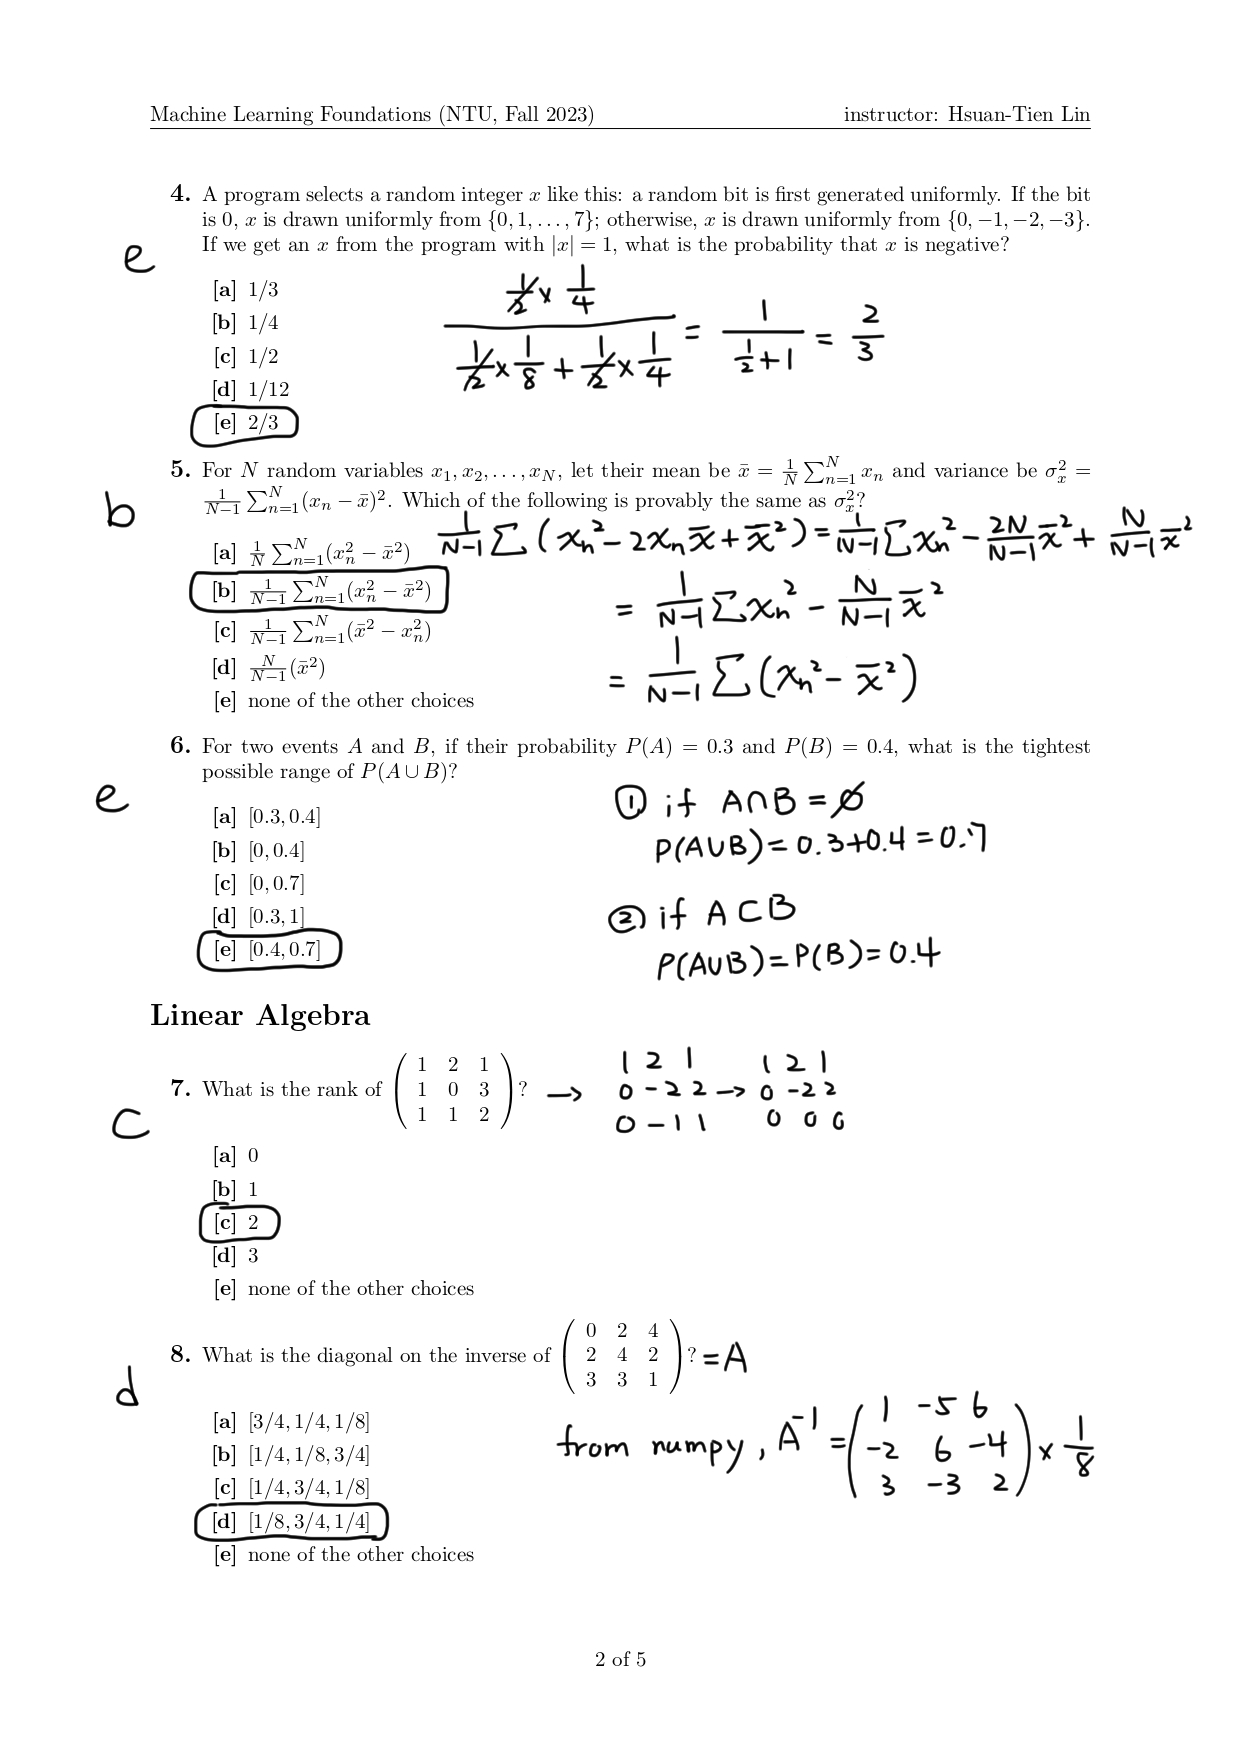 Machine Learning Foundations (NTU, Fall 2023) instructor: Hsuan-Tien Lin
4. A program selects a random integer x like this: a random bit is first generated uniformly. If the bit
is 0, x is drawn uniformly from {0, 1, . . . , 7}; otherwise, x is drawn uniformly from {0, −1, −2, −3}.
If we get an x from the program with |x| = 1, what is the probability that x is negative?
e
[a] 1/3
[b] 1/4
[c] 1/2
[d] 1/12
[e] 2/3
(1/2 × 1/4) / (1/2 × 1/8 + 1/2 × 1/4) = 1 / (1/2 + 1) = 2/3
5. For N random variables x₁, x₂, . . . , x_N, let their mean be x̄ = 1/N ∑_{n=1}^{N} x_n and variance be σ_x² =
1/(N−1) ∑_{n=1}^{N} (x_n − x̄)². Which of the following is provably the same as σ_x²?
b
[a] 1/N ∑_{n=1}^{N} (x_n² − x̄²)
[b] 1/(N−1) ∑_{n=1}^{N} (x_n² − x̄²)
[c] 1/(N−1) ∑_{n=1}^{N} (x̄² − x_n²)
[d] N/(N−1) (x̄²)
[e] none of the other choices
1/(N−1) ∑ (x_n² − 2x_n x̄ + x̄²) = 1/(N−1) ∑ x_n² − 2N/(N−1) x̄² + N/(N−1) x̄²
= 1/(N−1) ∑ x_n² − N/(N−1) x̄²
= 1/(N−1) ∑ (x_n² − x̄²)
6. For two events A and B, if their probability P(A) = 0.3 and P(B) = 0.4, what is the tightest
possible range of P(A ∪ B)?
e
[a] [0.3, 0.4]
[b] [0, 0.4]
[c] [0, 0.7]
[d] [0.3, 1]
[e] [0.4, 0.7]
① if A∩B = ∅
P(A∪B) = 0.3+0.4 = 0.7
② if A⊂B
P(A∪B) = P(B) = 0.4
Linear Algebra
7. What is the rank of ( 1 2 1
1 0 3
1 1 2 )?
→ 1 2 1
0 −2 2
0 −1 1
→ 1 2 1
0 −2 2
0 0 0
c
[a] 0
[b] 1
[c] 2
[d] 3
[e] none of the other choices
8. What is the diagonal on the inverse of ( 0 2 4
2 4 2
3 3 1 )? = A
d
[a] [3/4, 1/4, 1/8]
[b] [1/4, 1/8, 3/4]
[c] [1/4, 3/4, 1/8]
[d] [1/8, 3/4, 1/4]
[e] none of the other choices
from numpy, A⁻¹ = ( 1 −5 6
−2 6 −4
3 −3 2 ) × 1/8
2 of 5